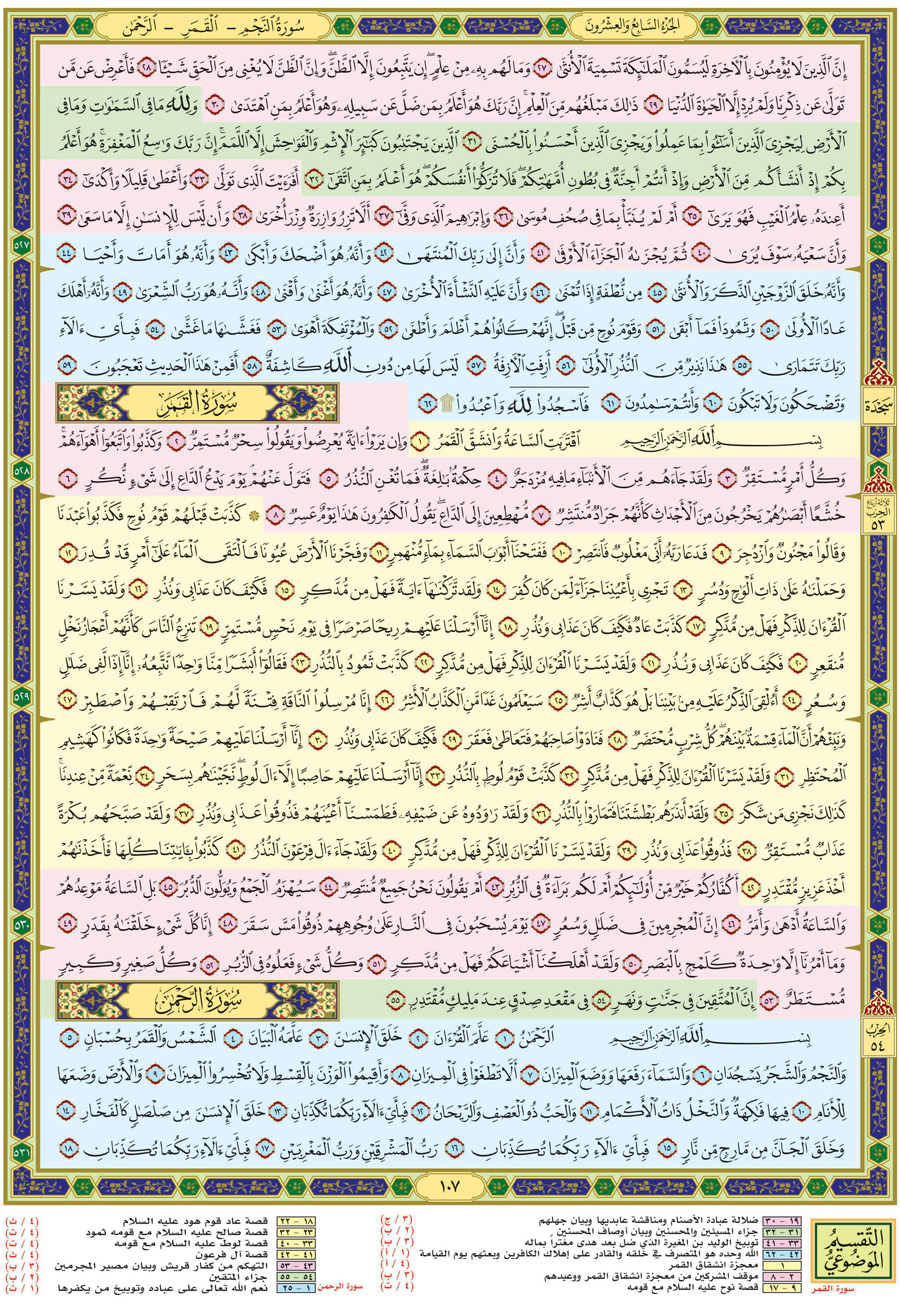 الجزء السابع والعشرون
سورة النجم - القمر - الرحمن
إِنَّ الَّذِينَ لَا يُؤْمِنُونَ بِالْآخِرَةِ لَيُسَمُّونَ الْمَلَائِكَةَ تَسْمِيَةَ الْأُنثَىٰ ٢٧ وَمَا لَهُم بِهِ مِنْ عِلْمٍ إِن يَتَّبِعُونَ إِلَّا الظَّنَّ وَإِنَّ الظَّنَّ لَا يُغْنِي مِنَ الْحَقِّ شَيْئًا ٢٨ فَأَعْرِضْ عَن مَّن
تَوَلَّىٰ عَن ذِكْرِنَا وَلَمْ يُرِدْ إِلَّا الْحَيَاةَ الدُّنْيَا ٢٩ ذَٰلِكَ مَبْلَغُهُم مِّنَ الْعِلْمِ إِنَّ رَبَّكَ هُوَ أَعْلَمُ بِمَن ضَلَّ عَن سَبِيلِهِ وَهُوَ أَعْلَمُ بِمَنِ اهْتَدَىٰ ٣٠ وَلِلَّهِ مَا فِي السَّمَاوَاتِ وَمَا فِي
الْأَرْضِ لِيَجْزِيَ الَّذِينَ أَسَاءُوا بِمَا عَمِلُوا وَيَجْزِيَ الَّذِينَ أَحْسَنُوا بِالْحُسْنَى ٣١ الَّذِينَ يَجْتَنِبُونَ كَبَائِرَ الْإِثْمِ وَالْفَوَاحِشَ إِلَّا اللَّمَمَ إِنَّ رَبَّكَ وَاسِعُ الْمَغْفِرَةِ هُوَ أَعْلَمُ
بِكُمْ إِذْ أَنشَأَكُم مِّنَ الْأَرْضِ وَإِذْ أَنتُمْ أَجِنَّةٌ فِي بُطُونِ أُمَّهَاتِكُمْ فَلَا تُزَكُّوا أَنفُسَكُمْ هُوَ أَعْلَمُ بِمَنِ اتَّقَىٰ ٣٢ أَفَرَأَيْتَ الَّذِي تَوَلَّىٰ ٣٣ وَأَعْطَىٰ قَلِيلًا وَأَكْدَىٰ ٣٤
أَعِندَهُ عِلْمُ الْغَيْبِ فَهُوَ يَرَىٰ ٣٥ أَمْ لَمْ يُنَبَّأْ بِمَا فِي صُحُفِ مُوسَىٰ ٣٦ وَإِبْرَاهِيمَ الَّذِي وَفَّىٰ ٣٧ أَلَّا تَزِرُ وَازِرَةٌ وِزْرَ أُخْرَىٰ ٣٨ وَأَن لَّيْسَ لِلْإِنسَانِ إِلَّا مَا سَعَىٰ ٣٩
وَأَنَّ سَعْيَهُ سَوْفَ يُرَىٰ ٤٠ ثُمَّ يُجْزَاهُ الْجَزَاءَ الْأَوْفَىٰ ٤١ وَأَنَّ إِلَىٰ رَبِّكَ الْمُنتَهَىٰ ٤٢ وَأَنَّهُ هُوَ أَضْحَكَ وَأَبْكَىٰ ٤٣ وَأَنَّهُ هُوَ أَمَاتَ وَأَحْيَا ٤٤
وَأَنَّهُ خَلَقَ الزَّوْجَيْنِ الذَّكَرَ وَالْأُنثَىٰ ٤٥ مِن نُّطْفَةٍ إِذَا تُمْنَىٰ ٤٦ وَأَنَّ عَلَيْهِ النَّشْأَةَ الْأُخْرَىٰ ٤٧ وَأَنَّهُ هُوَ أَغْنَىٰ وَأَقْنَىٰ ٤٨ وَأَنَّهُ هُوَ رَبُّ الشِّعْرَىٰ ٤٩ وَأَنَّهُ أَهْلَكَ
عَادًا الْأُولَىٰ ٥٠ وَثَمُودَ فَمَا أَبْقَىٰ ٥١ وَقَوْمَ نُوحٍ مِّن قَبْلُ إِنَّهُمْ كَانُوا هُمْ أَظْلَمَ وَأَطْغَىٰ ٥٢ وَالْمُؤْتَفِكَةَ أَهْوَىٰ ٥٣ فَغَشَّاهَا مَا غَشَّىٰ ٥٤ فَبِأَيِّ آلَاءِ
رَبِّكَ تَتَمَارَىٰ ٥٥ هَٰذَا نَذِيرٌ مِّنَ النُّذُرِ الْأُولَىٰ ٥٦ أَزِفَتِ الْآزِفَةُ ٥٧ لَيْسَ لَهَا مِن دُونِ اللَّهِ كَاشِفَةٌ ٥٨ أَفَمِنْ هَٰذَا الْحَدِيثِ تَعْجَبُونَ ٥٩
وَتَضْحَكُونَ وَلَا تَبْكُونَ ٦٠ وَأَنتُمْ سَامِدُونَ ٦١ فَاسْجُدُوا لِلَّهِ وَاعْبُدُوا ۩ ٦٢
سُورَةُ الْقَمَرِ
بِسْمِ اللَّهِ الرَّحْمَٰنِ الرَّحِيمِ اقْتَرَبَتِ السَّاعَةُ وَانشَقَّ الْقَمَرُ ١ وَإِن يَرَوْا آيَةً يُعْرِضُوا وَيَقُولُوا سِحْرٌ مُّسْتَمِرٌّ ٢ وَكَذَّبُوا وَاتَّبَعُوا أَهْوَاءَهُمْ
وَكُلُّ أَمْرٍ مُّسْتَقِرٌّ ٣ وَلَقَدْ جَاءَهُم مِّنَ الْأَنبَاءِ مَا فِيهِ مُزْدَجَرٌ ٤ حِكْمَةٌ بَالِغَةٌ فَمَا تُغْنِ النُّذُرُ ٥ فَتَوَلَّ عَنْهُمْ يَوْمَ يَدْعُ الدَّاعِ إِلَىٰ شَيْءٍ نُّكُرٍ ٦
خُشَّعًا أَبْصَارُهُمْ يَخْرُجُونَ مِنَ الْأَجْدَاثِ كَأَنَّهُمْ جَرَادٌ مُّنتَشِرٌ ٧ مُّهْطِعِينَ إِلَى الدَّاعِ يَقُولُ الْكَافِرُونَ هَٰذَا يَوْمٌ عَسِرٌ ٨ ۞ كَذَّبَتْ قَبْلَهُمْ قَوْمُ نُوحٍ فَكَذَّبُوا عَبْدَنَا
وَقَالُوا مَجْنُونٌ وَازْدُجِرَ ٩ فَدَعَا رَبَّهُ أَنِّي مَغْلُوبٌ فَانتَصِرْ ١٠ فَفَتَحْنَا أَبْوَابَ السَّمَاءِ بِمَاءٍ مُّنْهَمِرٍ ١١ وَفَجَّرْنَا الْأَرْضَ عُيُونًا فَالْتَقَى الْمَاءُ عَلَىٰ أَمْرٍ قَدْ قُدِرَ ١٢
وَحَمَلْنَاهُ عَلَىٰ ذَاتِ أَلْوَاحٍ وَدُسُرٍ ١٣ تَجْرِي بِأَعْيُنِنَا جَزَاءً لِّمَن كَانَ كُفِرَ ١٤ وَلَقَد تَّرَكْنَاهَا آيَةً فَهَلْ مِن مُّدَّكِرٍ ١٥ فَكَيْفَ كَانَ عَذَابِي وَنُذُرِ ١٦ وَلَقَدْ يَسَّرْنَا
الْقُرْآنَ لِلذِّكْرِ فَهَلْ مِن مُّدَّكِرٍ ١٧ كَذَّبَتْ عَادٌ فَكَيْفَ كَانَ عَذَابِي وَنُذُرِ ١٨ إِنَّا أَرْسَلْنَا عَلَيْهِمْ رِيحًا صَرْصَرًا فِي يَوْمِ نَحْسٍ مُّسْتَمِرٍّ ١٩ تَنزِعُ النَّاسَ كَأَنَّهُمْ أَعْجَازُ نَخْلٍ
مُّنقَعِرٍ ٢٠ فَكَيْفَ كَانَ عَذَابِي وَنُذُرِ ٢١ وَلَقَدْ يَسَّرْنَا الْقُرْآنَ لِلذِّكْرِ فَهَلْ مِن مُّدَّكِرٍ ٢٢ كَذَّبَتْ ثَمُودُ بِالنُّذُرِ ٢٣ فَقَالُوا أَبَشَرًا مِّنَّا وَاحِدًا نَّتَّبِعُهُ إِنَّا إِذًا لَّفِي ضَلَالٍ
وَسُعُرٍ ٢٤ أَأُلْقِيَ الذِّكْرُ عَلَيْهِ مِن بَيْنِنَا بَلْ هُوَ كَذَّابٌ أَشِرٌ ٢٥ سَيَعْلَمُونَ غَدًا مَّنِ الْكَذَّابُ الْأَشِرُ ٢٦ إِنَّا مُرْسِلُو النَّاقَةِ فِتْنَةً لَّهُمْ فَارْتَقِبْهُمْ وَاصْطَبِرْ ٢٧
وَنَبِّئْهُمْ أَنَّ الْمَاءَ قِسْمَةٌ بَيْنَهُمْ كُلُّ شِرْبٍ مُّحْتَضَرٌ ٢٨ فَنَادَوْا صَاحِبَهُمْ فَتَعَاطَىٰ فَعَقَرَ ٢٩ فَكَيْفَ كَانَ عَذَابِي وَنُذُرِ ٣٠ إِنَّا أَرْسَلْنَا عَلَيْهِمْ صَيْحَةً وَاحِدَةً فَكَانُوا كَهَشِيمِ
الْمُحْتَظِرِ ٣١ وَلَقَدْ يَسَّرْنَا الْقُرْآنَ لِلذِّكْرِ فَهَلْ مِن مُّدَّكِرٍ ٣٢ كَذَّبَتْ قَوْمُ لُوطٍ بِالنُّذُرِ ٣٣ إِنَّا أَرْسَلْنَا عَلَيْهِمْ حَاصِبًا إِلَّا آلَ لُوطٍ نَّجَّيْنَاهُم بِسَحَرٍ ٣٤ نِّعْمَةً مِّنْ عِندِنَا
كَذَٰلِكَ نَجْزِي مَن شَكَرَ ٣٥ وَلَقَدْ أَنذَرَهُم بَطْشَتَنَا فَتَمَارَوْا بِالنُّذُرِ ٣٦ وَلَقَدْ رَاوَدُوهُ عَن ضَيْفِهِ فَطَمَسْنَا أَعْيُنَهُمْ فَذُوقُوا عَذَابِي وَنُذُرِ ٣٧ وَلَقَدْ صَبَّحَهُم بُكْرَةً
عَذَابٌ مُّسْتَقِرٌّ ٣٨ فَذُوقُوا عَذَابِي وَنُذُرِ ٣٩ وَلَقَدْ يَسَّرْنَا الْقُرْآنَ لِلذِّكْرِ فَهَلْ مِن مُّدَّكِرٍ ٤٠ وَلَقَدْ جَاءَ آلَ فِرْعَوْنَ النُّذُرُ ٤١ كَذَّبُوا بِآيَاتِنَا كُلِّهَا فَأَخَذْنَاهُمْ
أَخْذَ عَزِيزٍ مُّقْتَدِرٍ ٤٢ أَكُفَّارُكُمْ خَيْرٌ مِّنْ أُولَٰئِكُمْ أَمْ لَكُم بَرَاءَةٌ فِي الزُّبُرِ ٤٣ أَمْ يَقُولُونَ نَحْنُ جَمِيعٌ مُّنتَصِرٌ ٤٤ سَيُهْزَمُ الْجَمْعُ وَيُوَلُّونَ الدُّبُرَ ٤٥ بَلِ السَّاعَةُ مَوْعِدُهُمْ
وَالسَّاعَةُ أَدْهَىٰ وَأَمَرُّ ٤٦ إِنَّ الْمُجْرِمِينَ فِي ضَلَالٍ وَسُعُرٍ ٤٧ يَوْمَ يُسْحَبُونَ فِي النَّارِ عَلَىٰ وُجُوهِهِمْ ذُوقُوا مَسَّ سَقَرَ ٤٨ إِنَّا كُلَّ شَيْءٍ خَلَقْنَاهُ بِقَدَرٍ ٤٩
وَمَا أَمْرُنَا إِلَّا وَاحِدَةٌ كَلَمْحٍ بِالْبَصَرِ ٥٠ وَلَقَدْ أَهْلَكْنَا أَشْيَاعَكُمْ فَهَلْ مِن مُّدَّكِرٍ ٥١ وَكُلُّ شَيْءٍ فَعَلُوهُ فِي الزُّبُرِ ٥٢ وَكُلُّ صَغِيرٍ وَكَبِيرٍ
مُّسْتَطَرٌ ٥٣ إِنَّ الْمُتَّقِينَ فِي جَنَّاتٍ وَنَهَرٍ ٥٤ فِي مَقْعَدِ صِدْقٍ عِندَ مَلِيكٍ مُّقْتَدِرٍ ٥٥
سُورَةُ الرَّحْمَٰن
بِسْمِ اللَّهِ الرَّحْمَٰنِ الرَّحِيمِ الرَّحْمَٰنُ ١ عَلَّمَ الْقُرْآنَ ٢ خَلَقَ الْإِنسَانَ ٣ عَلَّمَهُ الْبَيَانَ ٤ الشَّمْسُ وَالْقَمَرُ بِحُسْبَانٍ ٥
وَالنَّجْمُ وَالشَّجَرُ يَسْجُدَانِ ٦ وَالسَّمَاءَ رَفَعَهَا وَوَضَعَ الْمِيزَانَ ٧ أَلَّا تَطْغَوْا فِي الْمِيزَانِ ٨ وَأَقِيمُوا الْوَزْنَ بِالْقِسْطِ وَلَا تُخْسِرُوا الْمِيزَانَ ٩ وَالْأَرْضَ وَضَعَهَا
لِلْأَنَامِ ١٠ فِيهَا فَاكِهَةٌ وَالنَّخْلُ ذَاتُ الْأَكْمَامِ ١١ وَالْحَبُّ ذُو الْعَصْفِ وَالرَّيْحَانُ ١٢ فَبِأَيِّ آلَاءِ رَبِّكُمَا تُكَذِّبَانِ ١٣ خَلَقَ الْإِنسَانَ مِن صَلْصَالٍ كَالْفَخَّارِ ١٤
وَخَلَقَ الْجَانَّ مِن مَّارِجٍ مِّن نَّارٍ ١٥ فَبِأَيِّ آلَاءِ رَبِّكُمَا تُكَذِّبَانِ ١٦ رَبُّ الْمَشْرِقَيْنِ وَرَبُّ الْمَغْرِبَيْنِ ١٧ فَبِأَيِّ آلَاءِ رَبِّكُمَا تُكَذِّبَانِ ١٨
سجدة
ثلاثة أرباع
الحزب
٥٣
الحزب
٥٤
٥٢٧
٥٢٨
٥٢٩
٥٣٠
٥٣١
١٠٧
التقسيم
الموضوعي
١٩ - ٣٠ ضلالة عبادة الأصنام ومناقشة عابديها وبيان جهلهم (٣ / ج)
٣١ - ٣٢ جزاء المسيئين والمحسنين وبيان أوصاف المحسنين (٢ / ب)
٣٣ - ٤١ توبيخ الوليد بن المغيرة الذي ضل بعد هدى مغترا بماله (٣ / ب)
٤٢ - ٦٢ الله وحده هو المتصرف في خلقه والقادر على إهلاك الكافرين وبعثهم يوم القيامة (١ / أ)
سورة القمر
١ معجزة انشقاق القمر (٤ / أ)
٢ - ٨ موقف المشركين من معجزة انشقاق القمر ووعيدهم (٣ / ب)
٩ - ١٧ قصة نوح عليه السلام مع قومه (٤ / ت)
١٨ - ٢٢ قصة عاد قوم هود عليه السلام (٤ / ث)
٢٣ - ٣٢ قصة صالح عليه السلام مع قومه ثمود (٤ / ت)
٣٣ - ٤٠ قصة لوط عليه السلام مع قومه (٤ / ت)
٤١ - ٤٢ قصة آل فرعون (٤ / ث)
٤٣ - ٥٣ التهكم من كفار قريش وبيان مصير المجرمين (٣ / ب)
٥٤ - ٥٥ جزاء المتقين (٢ / ب)
سورة الرحمن
١ - ٢٥ نعم الله تعالى على عباده وتوبيخ من يكفرها (١ / ت)